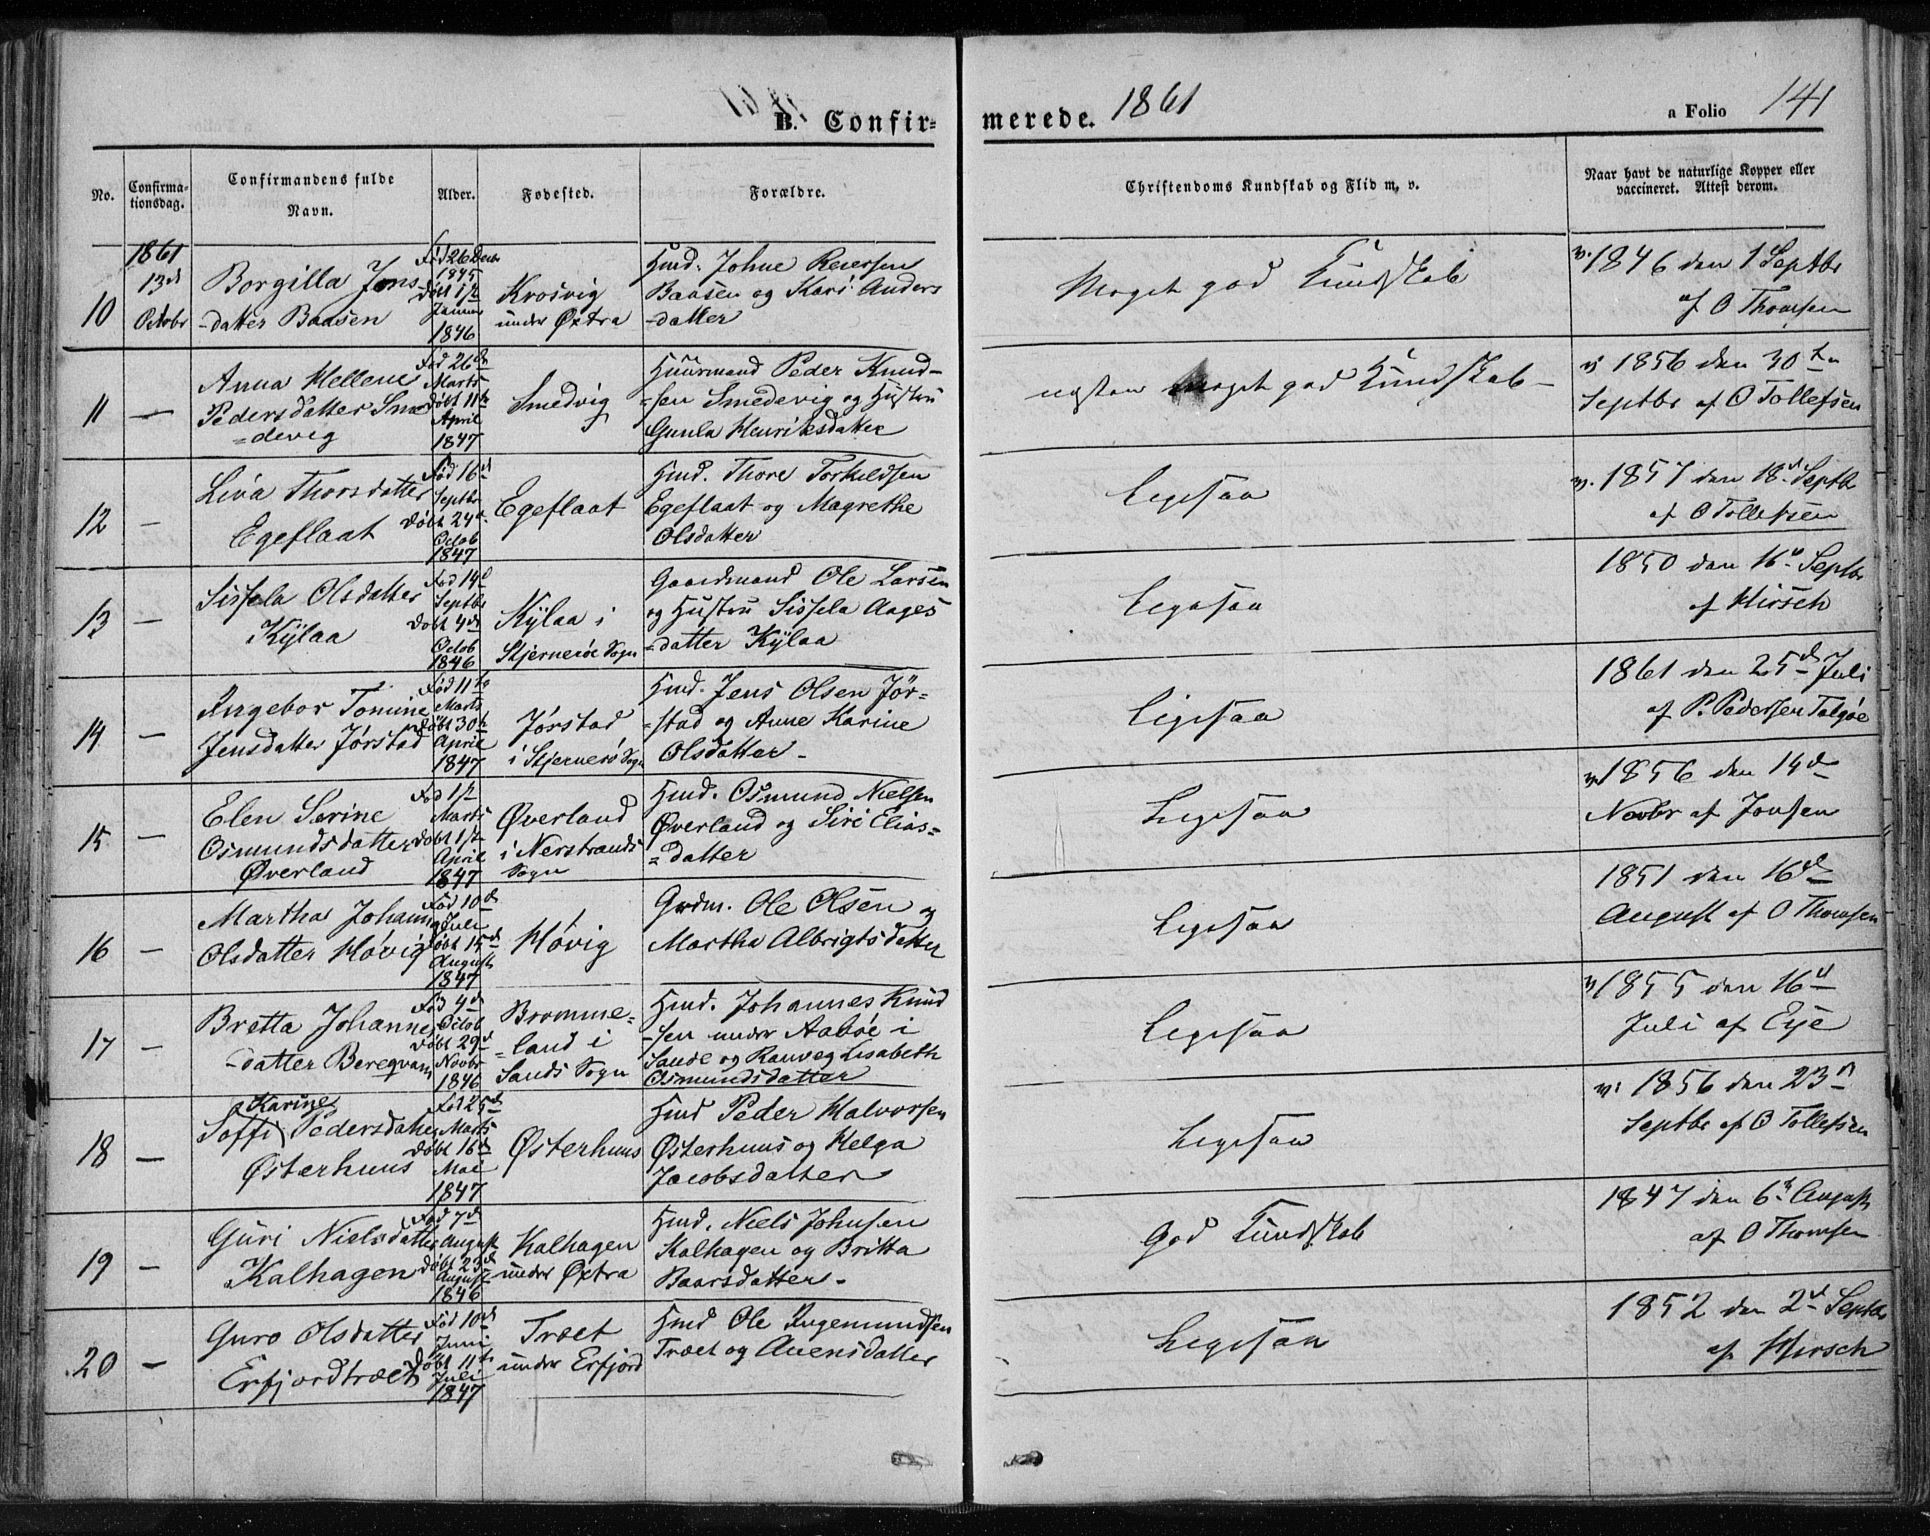 B. Confir-
merede. 1861
a Folio 141
No.
Confirma-
tionsdag.
Confirmandens fulde
Navn.
Alder.
Fødested.
Forældre.
Christendoms Kundskab og Flid m. v.
Naar havt de naturlige Kopper eller
vaccineret. Attest derom.
10
1861
13d
Octobr
Borgilla Jons
-datter Baasen
Fød 26 Decbr
1845
Døbt 1ste
Januar
1846
Krosvig
under Øxtra
Hmd. Johne Reiersen
Baasen og Kari Anders
-datter
Meget god Kundskab
v. 1846 den 1 Septbr
af O Thomsen
11
—
Anna Hellene
Pedersdatter Sme
=devig
Fød 26de
Marts
Døbt 11te
April
1847
Smedvig
Huusmand Peder Knud-
-sen Smedevig og Hustru
Gunla Henriksdatter
næsten meget god Kundskab-
v 1856 den 30te
Septbr af O Tollefsen
12
—
Liva Thorsdatter
Egeflaat
Fød 16d
Septbr
Døbt 24d
Octob
1847
Egeflaat
Hmd. Thore Torkildsen
Egeflaat og Magrethe
Olsdatter
Ligesaa
v. 1857 den 18d Septb
af O Tollefsen
13
—
Sissela Olsdatter
Kÿlaa
Fød 14d
Septbr
Døbt 4de
Octob
1846
Kÿlaa i
Stjernerøe Sogn
Gaardmand Ole Larsen
og Hustru Sissela Aages
=datter Kÿlaa
Ligesaa
1850 den 16d Septbr
af Hirsch
14
—
Ingebor Tomine
Jensdatter Jørstad
Fød 11te
Marts
Døbt 30te
April
1847
Jørstad
i Stjernerø Sogn
Hmd. Jens Olsen Jør-
=stad og Anne Karine
Olsdatter -
Ligesaa
1861 den 25de Juli
af P. Pedersen Talgøe
15
—
Elen Serine
Osmundsdatter
Øverland
Fød 1ste
Marts
Døbt 1ste
April
1847
Øverland
i Nerstrands
Sogn
Hmd. Osmund Nielsen
Øverland og Siri Elias=
=datter
Ligesaa
v 1856 den 14de
Novbr af Jonsen
16
—
Martha Johanna
Olsdatter Høvig
Fød 10de
Juli
Døbt 15de
August
1847
Høvig
Grdm. Ole Olsen og
Martha Albrigtsdatter
Ligesaa
1851 den 16de
August af O Thomsen
17
—
Bretta Johannes
-datter Bereqvam
Fød 4de
Octob
Døbt 29d
Novbr
1846
Bromme=
=land i
Sands Sogn
Hmd. Johannes Knud
-sen under Aabøe i
Sande og Ranveg Lisabeth
Osmundsdatter
Ligesaa
v 1855 den 16d
Juli af Eye
18
—
Karine
Soffi Pedersdatter
Østerhuus
Fød 25d
Marts
Døbt 16de
Mai
1847
Østerhuus
Hmd Peder Halvorsen
Østerhuus og Helga
Jacobsdatter
Ligesaa
v: 1856 den 23d
Septbr af O Tollefsen
19
—
Guri Nielsdatter
Kalhagen
Fød 7d
August
Døbt 23d
August
1846
Kalhagen
under Øxtra
Hmd. Niels Johnsen
Kalhagen og Britta
Baarsdatter -
God Kundskab
1847 den 6d August
af O Thomsen
20
—
Guro Olsdatter
Erfjordtræet
Fød 10de
Juni
Døbt 11te
Juli
1847
Træet
under Erfjord
Hmd Ole Ingemundsen
Træet og Auensdatter
Ligesaa
1852 den 2d Septbr
af Hirsch